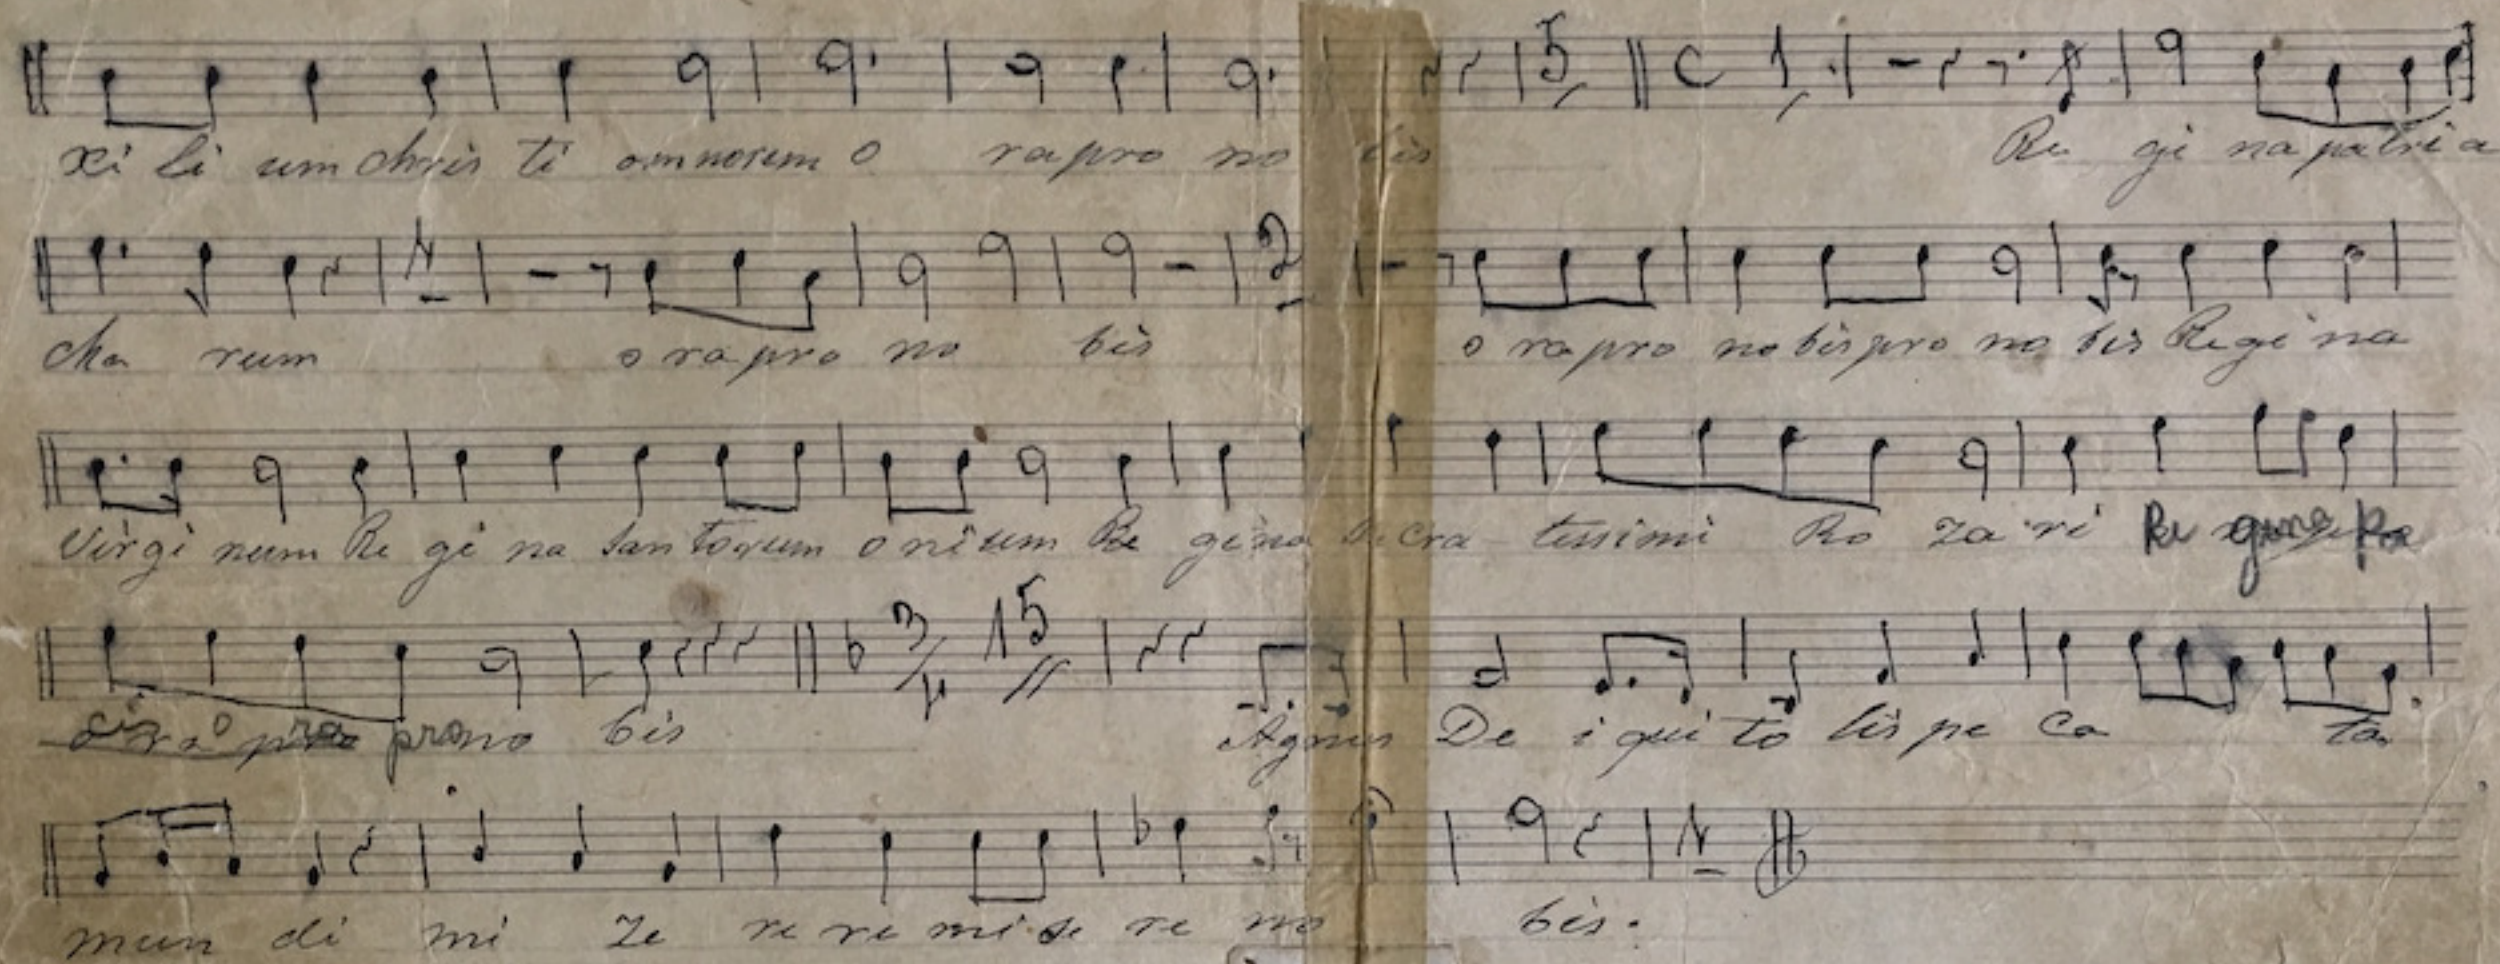 xi li um chris ti omnorum o ra pro no bis Re gi na patri a
cha rum o ra pro no bis o ra pro no bis pro no bis Re gi na
Virgi num Re gi na san torum oni um Re gi na Sacra tissimi Ro za ri Re gina
pro no bis Agnus De i qui to lis pe ca ta
mun di mi ze re re mi se re no bis.